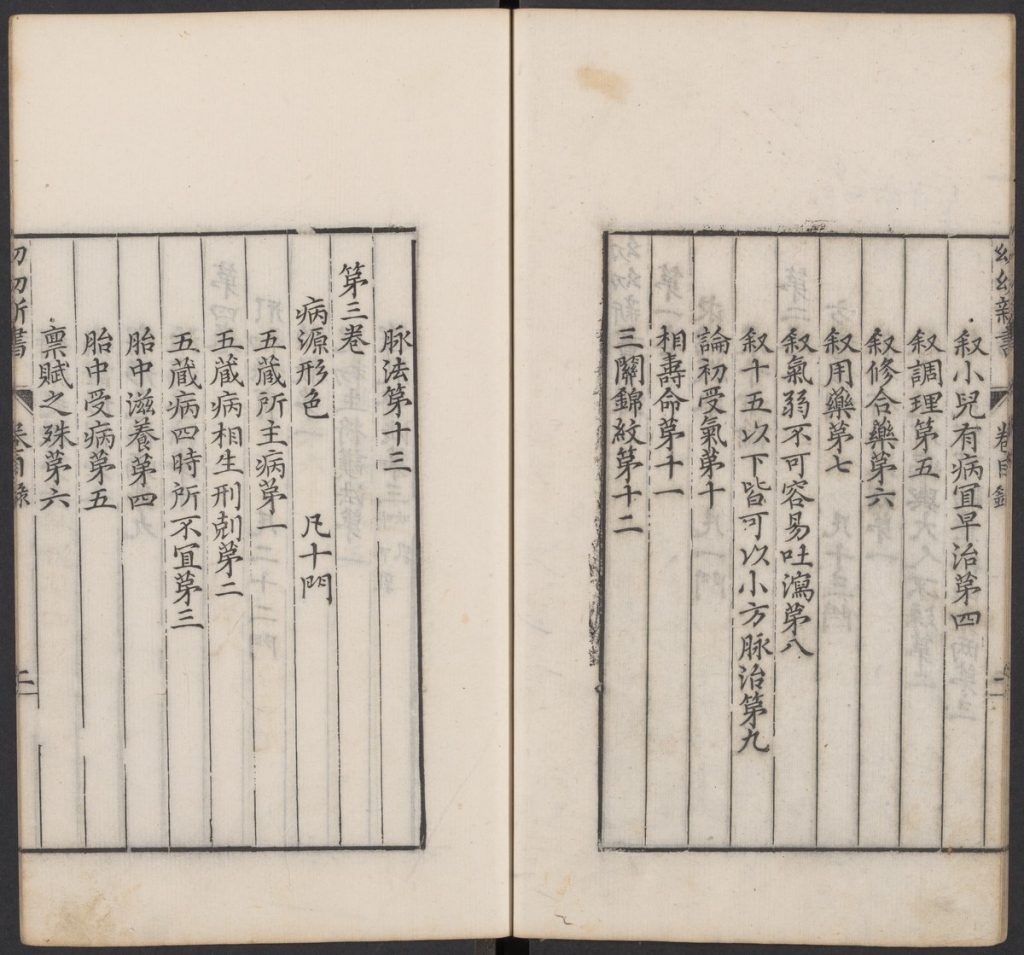 幼幼新書 卷目錄 二
叙小兒有病冝早治苐四
叙調理苐五
叙修合藥苐六
叙用藥苐七
叙氣弱不可容易吐瀉苐八
叙十五以下皆可以小方脉治第九
論初受氣苐十
相壽命苐十一
三關錦紋苐十二
脉法第十三
第三卷
病源形色 凡十門
五蔵所主病苐一
五蔵病相生刑剋苐二
五蔵病四時所不冝苐三
胎中滋養苐四
胎中受病苐五
禀賦之殊苐六
幼幼新書 卷目錄 二